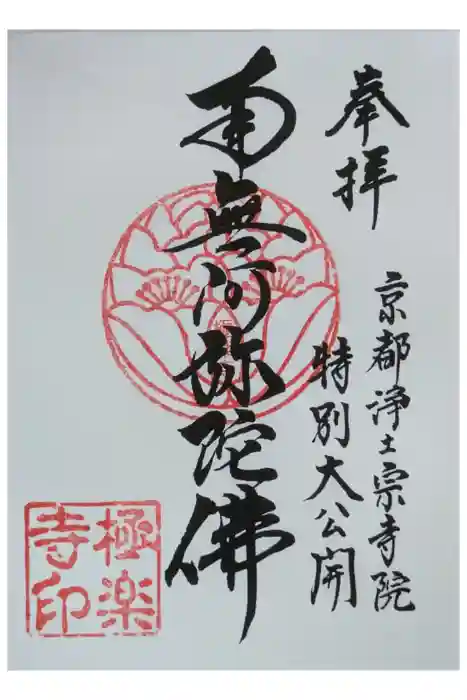 奉拝
京都浄土宗寺院
特別大公開
南無阿弥陀佛
極楽
寺印